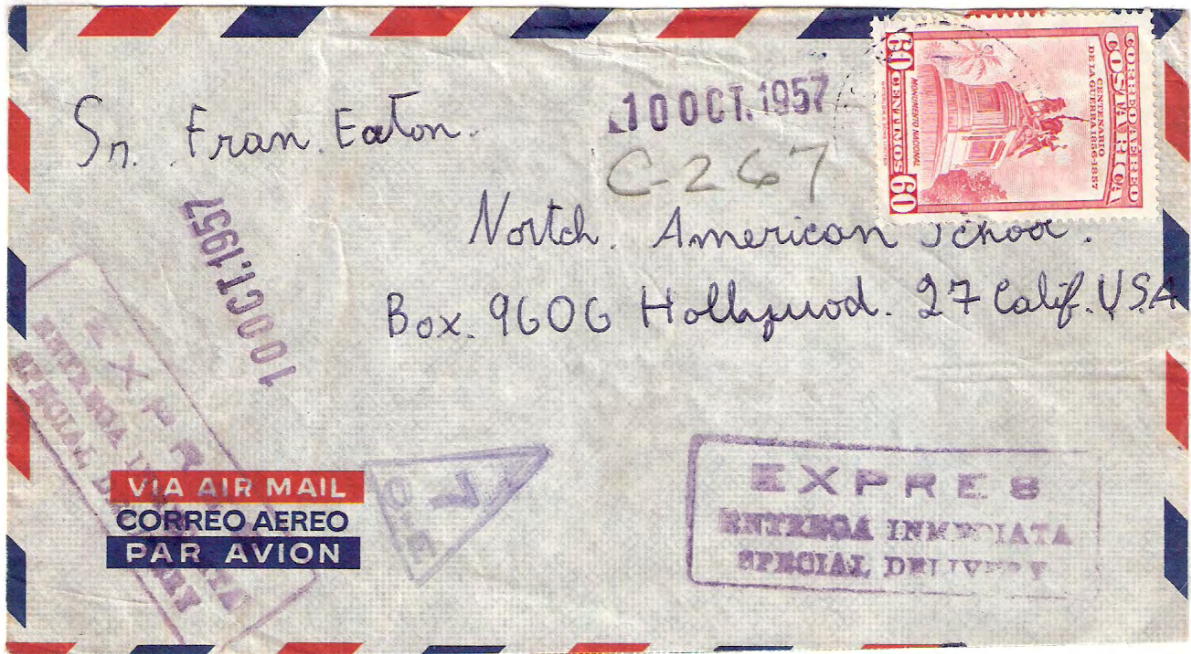 Sr. Fran. Eaton.
10 OCT. 1957
C-267
CORREO AEREO
COSTA RICA
CENTENARIO
DE LA GUERRA 1856-1857
MONUMENTO NACIONAL
60 CENTIMOS 60
Nortch. American School.
Box. 9606 Hollywod. 27 Calif. USA
10 OCT. 1957
EXPRES
ENTREGA INMEDIATA
SPECIAL DELIVERY
VIA AIR MAIL
CORREO AEREO
PAR AVION
EXPRES
ENTREGA INMEDIATA
SPECIAL DELIVERY